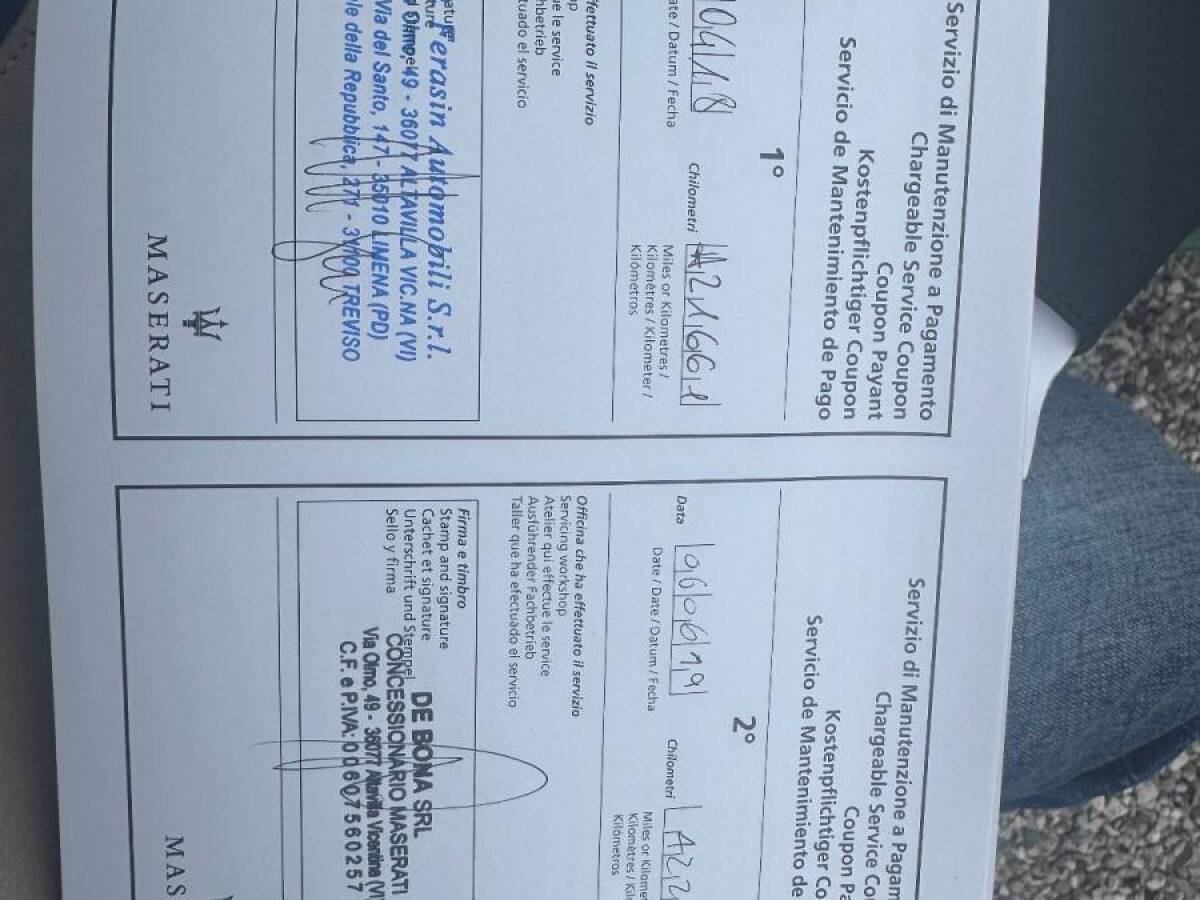 Servizio di Manutenzione a Pagamento
Chargeable Service Coupon
Coupon Payant
Kostenpflichtiger Coupon
Servicio de Mantenimiento de Pago
1°
04/18
ate / Datum / Fecha
Chilometri
21661
Miles or Kilometres /
Kilomètres / Kilometer /
Kilómetros
ffettuato il servizio
op
ue le service
hbetrieb
tuado el servicio
Ferasin Automobili S.r.l.
Olmo, 49 - 36077 ALTAVILLA VIC.NA (VI)
Via del Santo, 147 - 35010 LIMENA (PD)
le della Repubblica, 271 - 31100 TREVISO
MASERATI
Servizio di Manutenzione a Pagam
Chargeable Service Cou
Coupon Pa
Kostenpflichtiger Co
Servicio de Mantenimiento de
2°
Data
060619
Date / Date / Datum / Fecha
Chilometri
Miles or Kilomet
Kilomètres / Kil
Kilómetros
Officina che ha effettuato il servizio
Servicing workshop
Atelier qui effectue le service
Ausführender Fachbetrieb
Taller que ha efectuado el servicio
Firma e timbro
Stamp and signature
Cachet et signature
Unterschrift und Stempel
Sello y firma
DE BONA SRL
CONCESSIONARIO MASERATI
Via Olmo, 49 - 36077 Altavilla Vicentina (V
C.F. e P.IVA: 00607560257
MAS